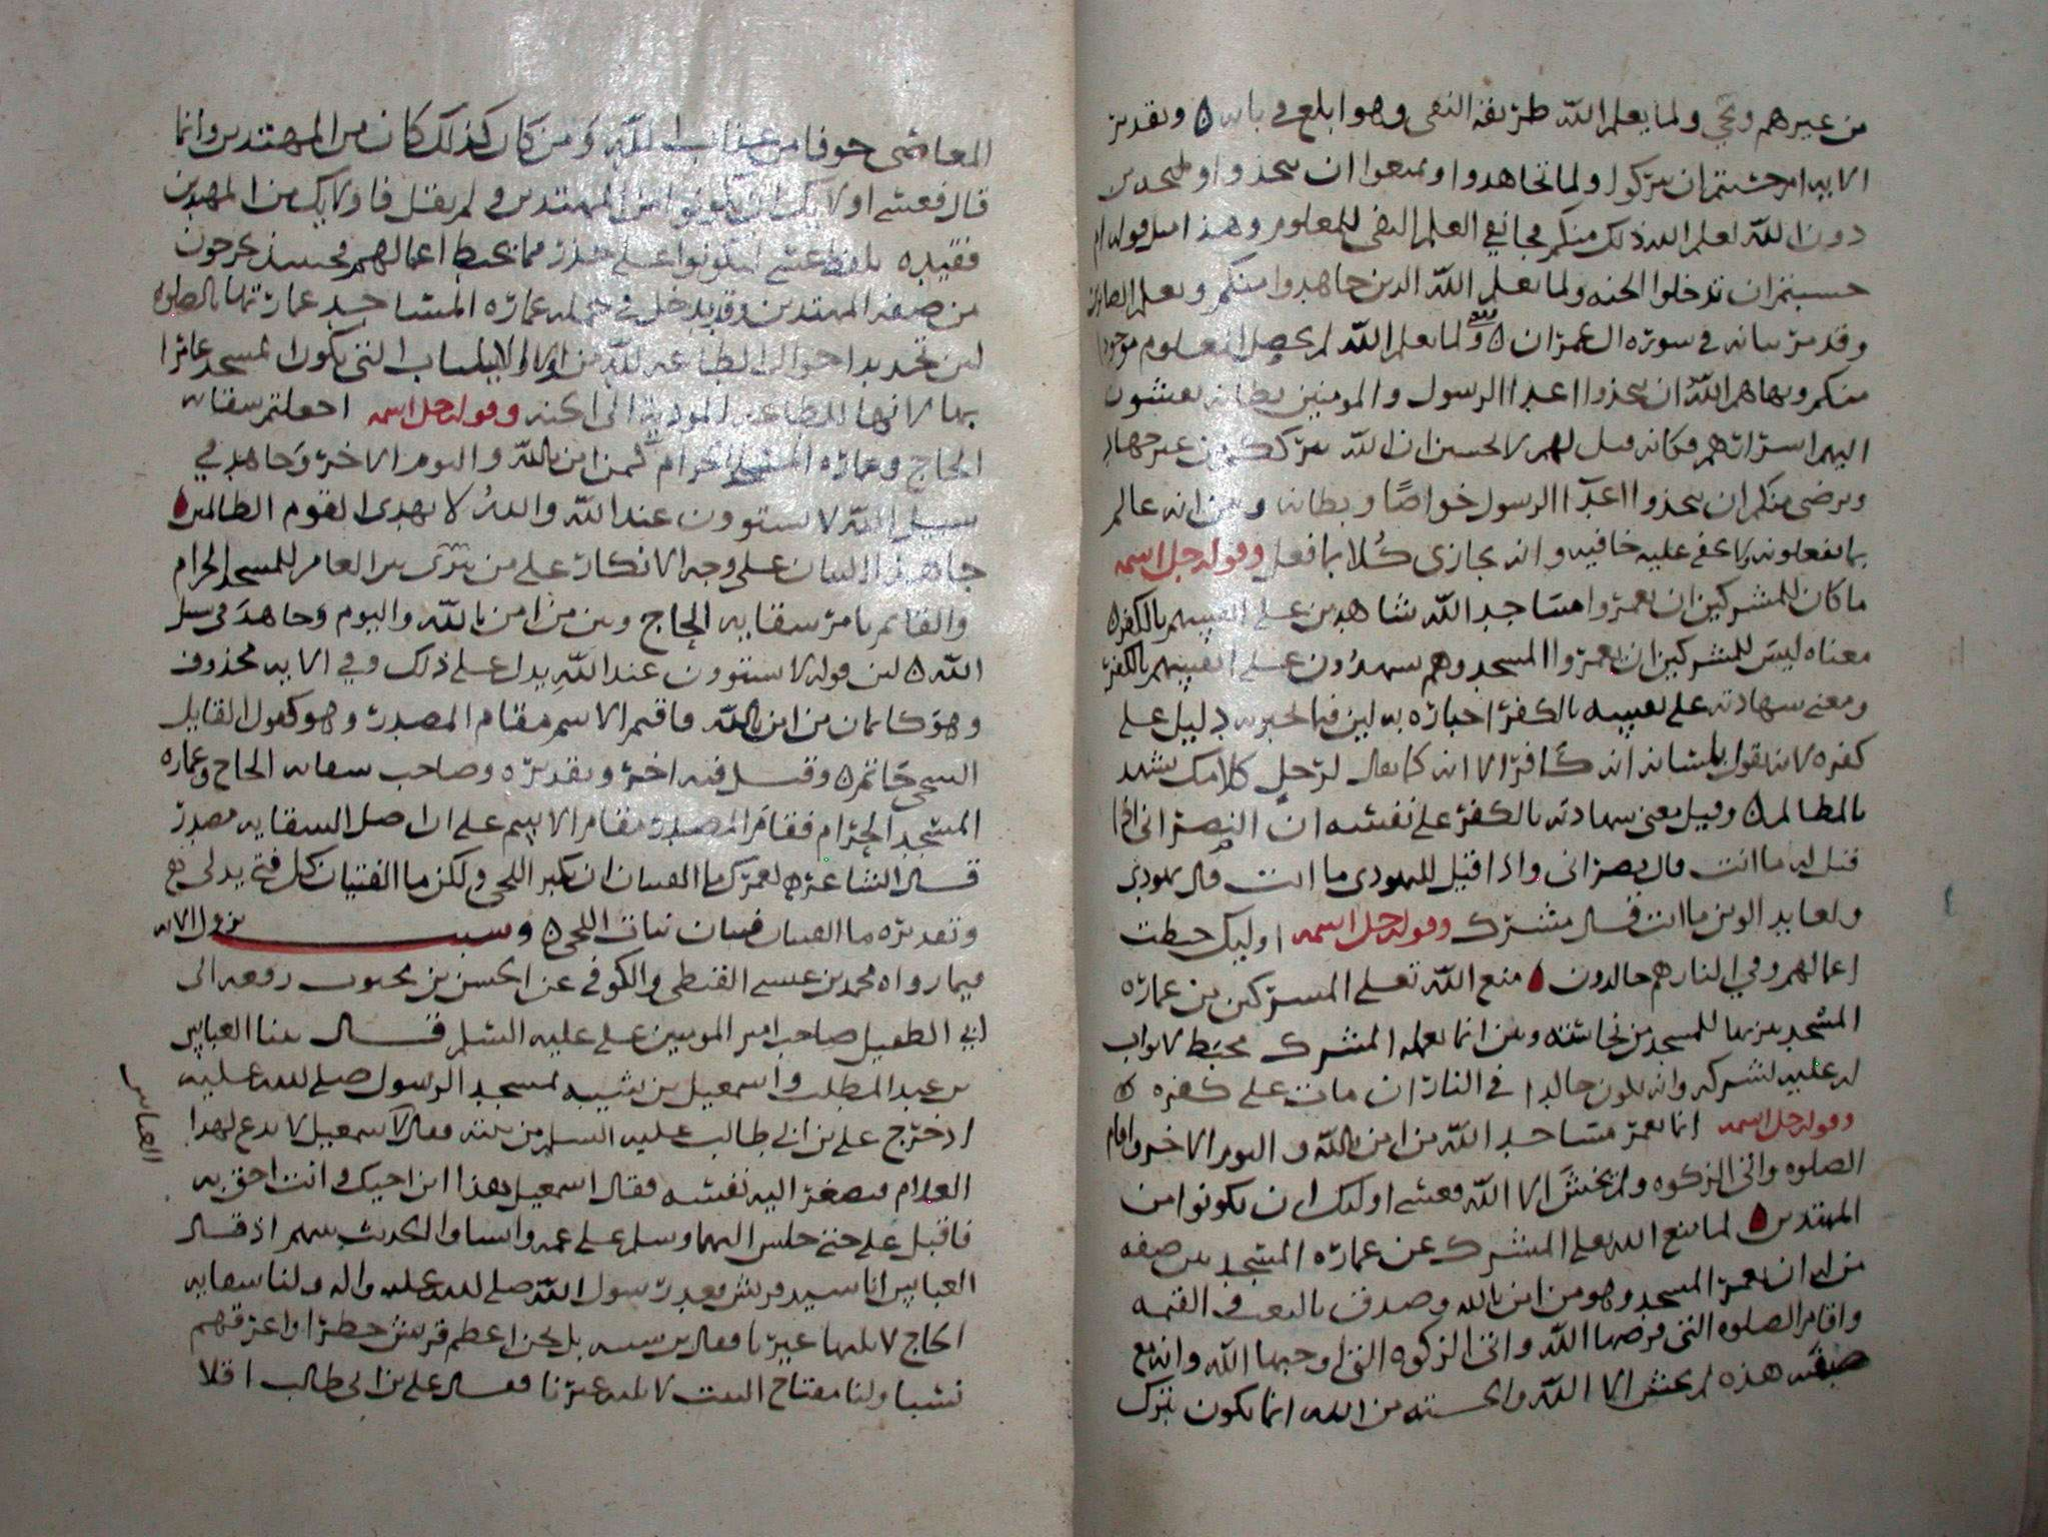 من غيرهم ونحي ولما يعلم الله طريقه النفى وهو ابلغ في بابه ٥ وتقدير
الايه ام حسبتم ان تتركوا ولما تجاهدوا وتمنعوا ان تتخذوا
دون الله لعلم الله ذلك منكم فجا نفي العلم النفى للمعلوم وهذا مثل قوله ام
حسبتم ان تدخلوا الجنه ولما يعلم الله الذين جاهدوا منكم ويعلم الصابرين
وقد مر بيانه في سورة ال عمران ٥ ولما يعلم الله لم يحصل المعلوم موجودا
منكم ونهاهم الله ان يتخذوا اعدا الرسول والمومنين بطانه يفشون
اليهم اسرارهم فكانه قيل لهم لا تحسبن ان الله يترككم من غير جهاد
ويرضى منكم ان يتخذوا اعدا الرسول خواصا وبطانه وبين انه عالم
بما تفعلونه لا يخفى عليه خافيه وانه يجازى كلا بما فعل وقوله جل اسمه
ما كان للمشركين ان يعمروا مساجد الله شاهدين على انفسهم بالكفر ٥
معناه ليس للمشركين ان يعمروا المسجد وهم يشهدون على انفسهم بالكفر
ومعنى شهادته على نفسه بالكفر اخباره به لان فيما اخبر به دليل على
كفره لانه يقول بلسانه انه كافر الا انه كما يقال لرجل كلامك يشهد
بالمظالم ٥ وقيل معنى شهادته بالكفر على نفسه ان النصرانى اذا
قيل له ما انت قال نصرانى واذا قيل لليهودى ما انت قال يهودى
ولعابد الوثن ما انت قال مشرك وقوله جل اسمه اوليك حبطت
اعمالهم وفي النار هم خالدون منع الله تعلى المشركين من عماره
المسجد تنزيها للمسجد من نجاسته وبين انما يعمله المشرك محبط لا ثواب
له عليه لشركه وانه يكون خالدا في النار ان مات على كفره ٥
وقوله جل اسمه انما يعمر مساجد الله من امن بالله واليوم الاخر واقام
الصلوه واتى الزكوه ولم يخش الا الله فعسى اوليك ان يكونوا من
المهتدين لما منع الله تعلى المشرك عن عماره المسجد بين صفه
من له ان يعمر المسجد وهو من امن بالله وصدق بالبعث في القيمه
واقام الصلوه التى فرضها الله واتى الزكوه التى اوجبها الله وانه مع
صفته هذه لم يخش الا الله والخشيه من الله انما تكون بترك
المعاصى خوفا من عذاب الله ومن كان كذلك كان من المهتدين وانما
قال فعسى اوليك ان يكونوا من المهتدين ولم يقل فاوليك من المهتدين
فقيده بلفظ عسى ليكونوا على حذر مما يحبط اعمالهم فحينئذ يخرجون
من صفه المهتدين وقد يدخل في جمله عماره المساجد عمارتها بالصلوه
لان تجديد احوال الطاعه لله من اوكد الاسباب التى يكون المسجد عامرا
بها لانها للطاعه المودية الى الجنه وقوله جل اسمه اجعلتم سقايه
الحاج وعماره المسجد الحرام كمن امن بالله واليوم الاخر وجاهد في
سبيل الله لا يستوون عند الله والله لا يهدى القوم الظالمين
جا هذا البيان على وجه الانكار على من سوى بين العامر للمسجد الحرام
والقايم بامر سقايه الحاج وبين من امن بالله واليوم وجاهد في سبيل
الله ٥ لان قوله لا يستوون عند الله يدل على ذلك وفي الايه محذوف
وهو كايمان من امن بالله فاقيم الاسم مقام المصدر وهو كقول القايل
السخى حاتم ٥ وقيل فيه اخر وتقديره وصاحب سقايه الحاج وعماره
المسجد الحرام فقام المصدر مقام الاسم على ان اصل السقايه مصدر
قال الشاعر ٥ لعمرك ما الفتيان ان تكبر اللحى ولكن ما الفتيان كل فتى يدلى ٥
وتقديره ما الفتيان فتيان نبات اللحى ٥ وسبب نزول الايه
فيما رواه محمد بن عيسى والكوفي عن الحسن بن محبوب رفعه الى
ابي الطفيل صاحب امير المومنين على عليه السلم قال بينا العباس
بن عبد المطلب واسمعيل بن شيبه لمسجد الرسول صلى الله عليه
اذ خرج على بن ابى طالب عليه السلم من بيته فقال لاسمعيل لا تدع لهذا
العباس
الغلام فيصغر اليه نفسه فقال اسمعيل هذا ابن اخيك وانت احق به
فاقبل على حتى جلس اليهما وسلم على عمه والحديث بينهم اذ قال
العباس انا سيد قريش بعد رسول الله صلى الله عليه واله ولنا سقايه
الحاج لا يليها غيرنا فقال بن شيبه بل نحن اعظم قريش خطرا واعرقهم
نسبا ولنا مفتاح البيت لا يليه غيرنا فقال على بن ابى طالب افلا